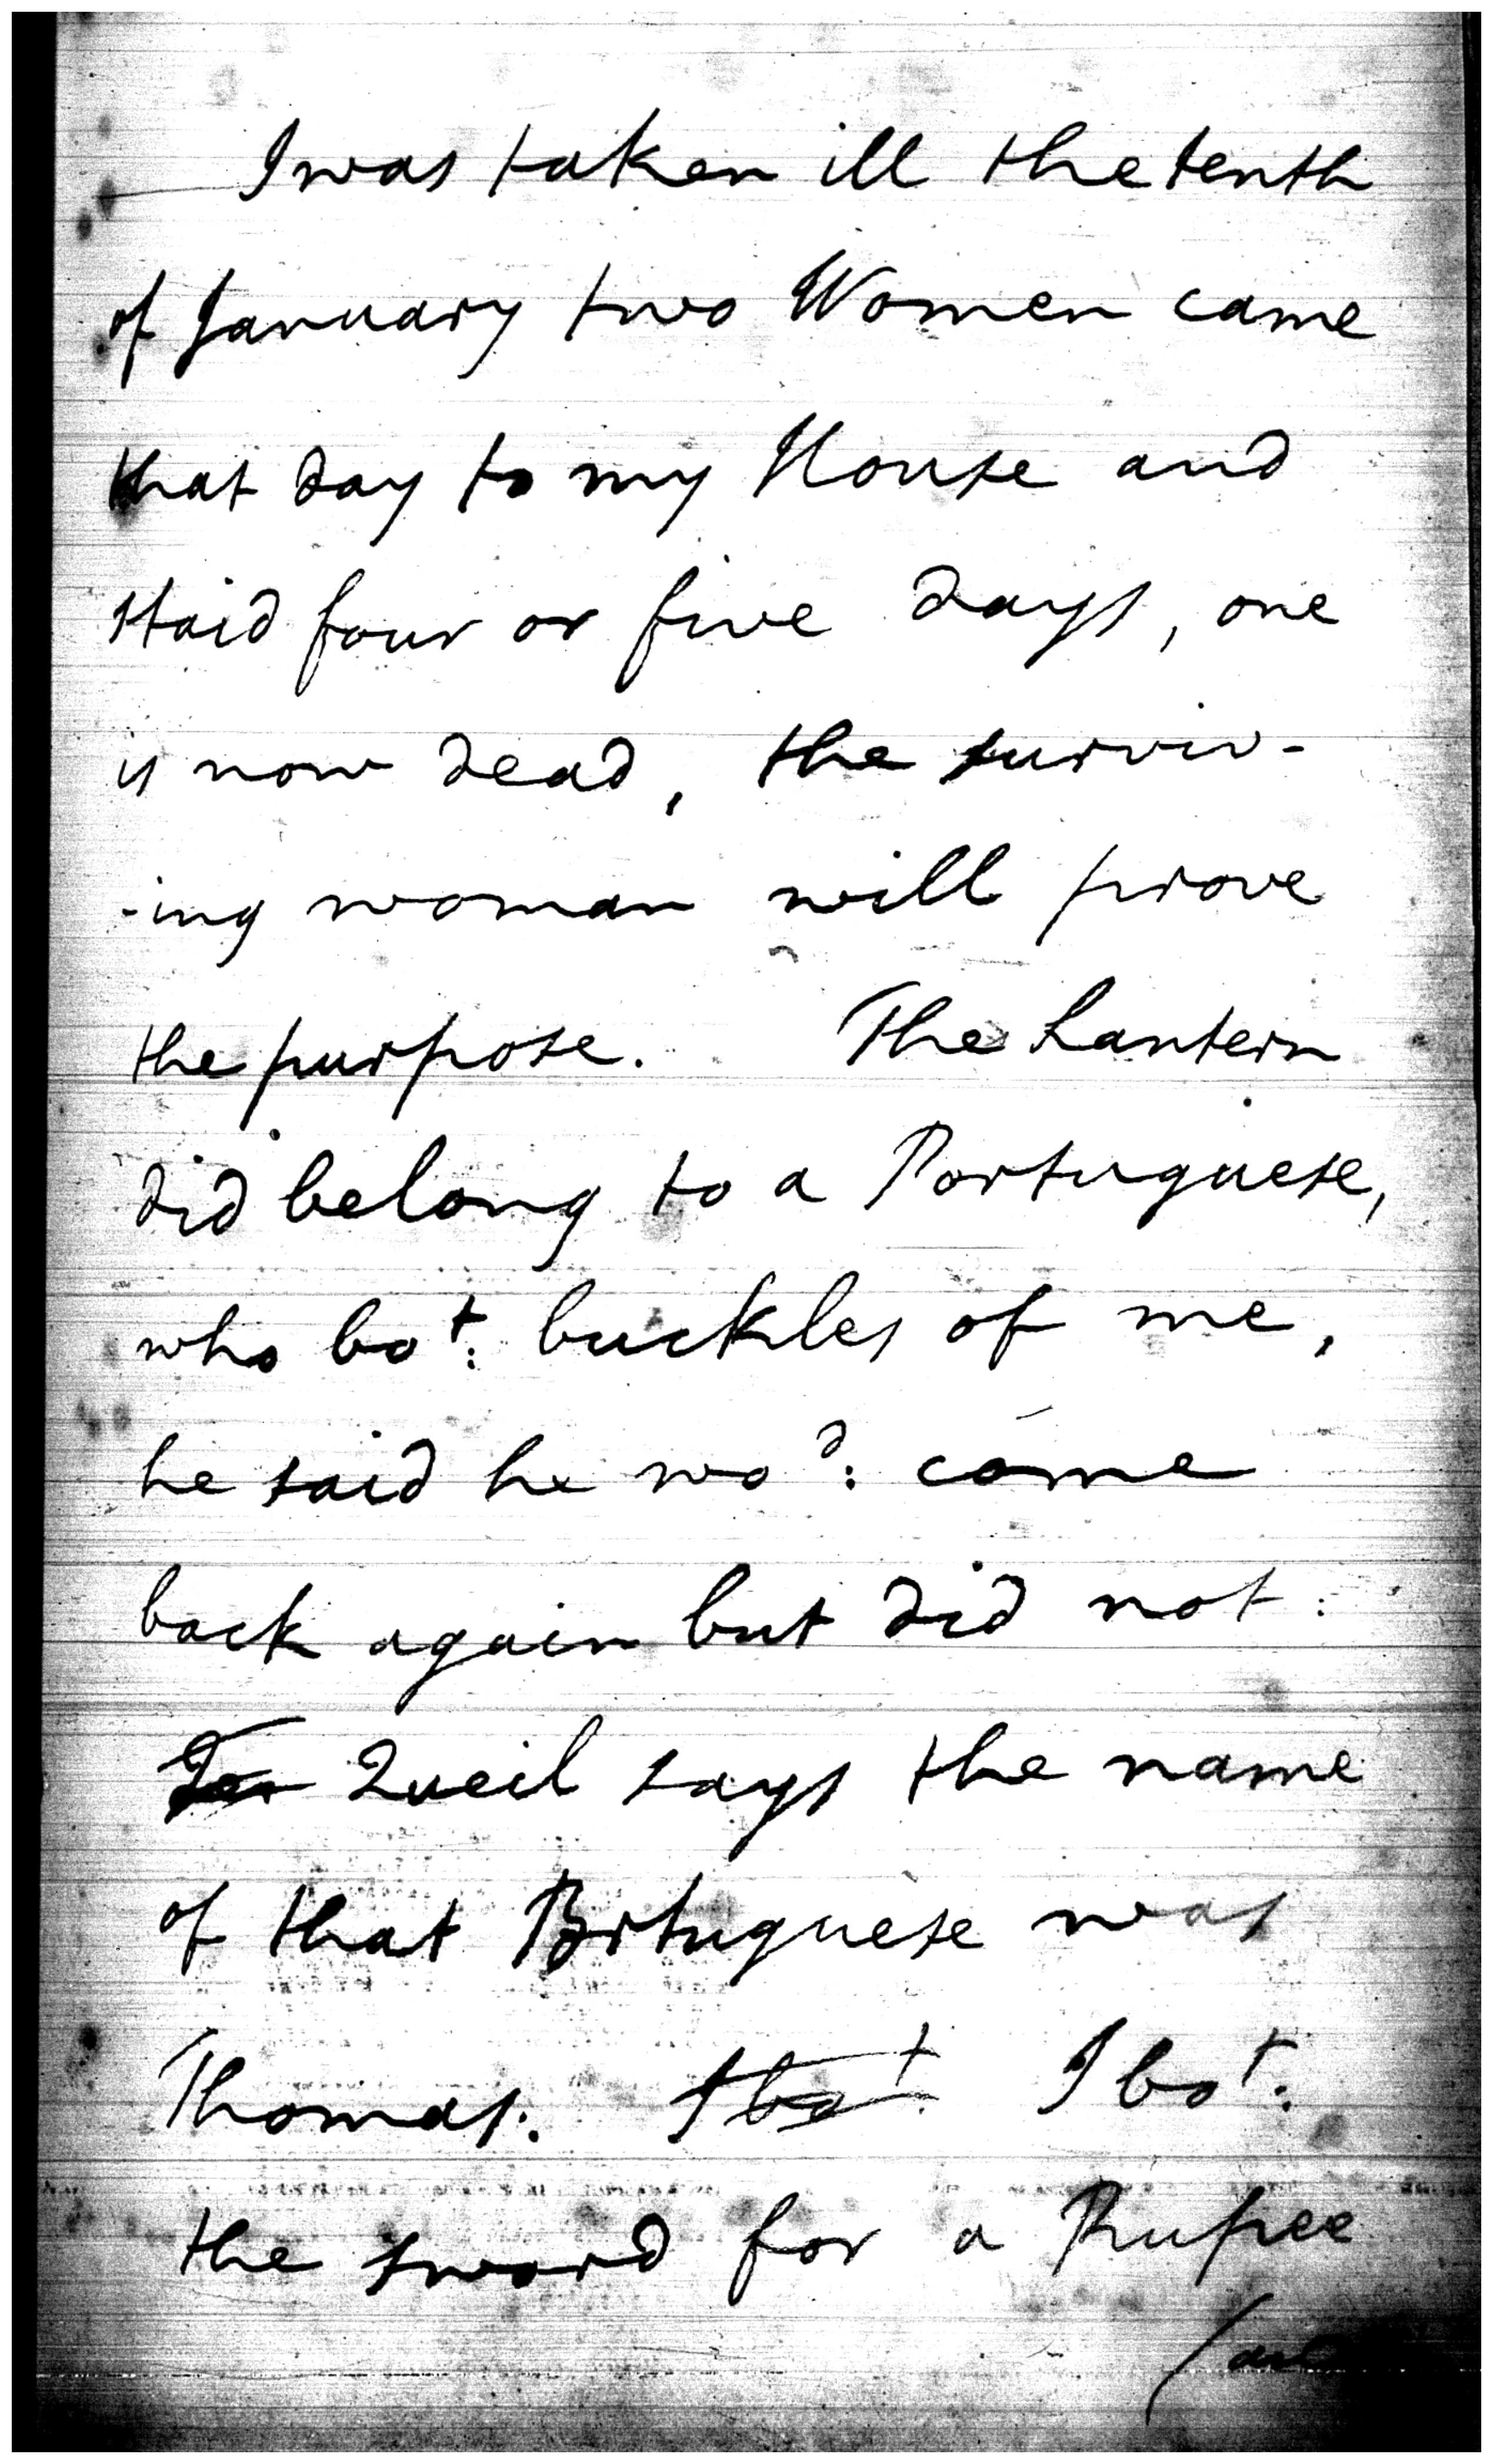 I was taken ill the tenth
of January two Women came
that day to my House and
staid four or five days, one
is now dead, the surviv-
-ing woman will prove
the purpose. The Lantern
did belong to a Portuguese,
who bot: buckles of me,
he said he wod: come
back again but did not:
Queil says the name
of that Portuguese was
Thomas. I bot: I bot:
the sword for a Rupee